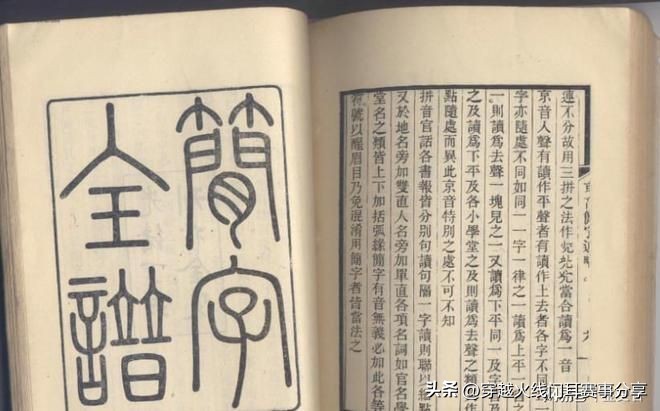 簡字
全譜
連不分故用三拼之法作當合讀爲一音
京音入聲有讀作平聲者有讀作上去者各字不同
字亦隨處不同如同一一字一律之一讀爲上平
一則讀爲去聲一塊見之一又讀爲下平同一及字
之及讀爲下平及各小學堂之及則讀爲去聲之類
點隨處而異此京音特別之處不可不知
拼音官話各書報皆分別句讀句隔一字讀則聯以
又於地名旁加雙直人名旁加單直各項名詞如官名學
堂名之類皆上下加括弧緣簡字有音無義必加此各等
符號以醒眉目乃免混淆用簡字者皆當法之
头条 @穿越火线赛事分享